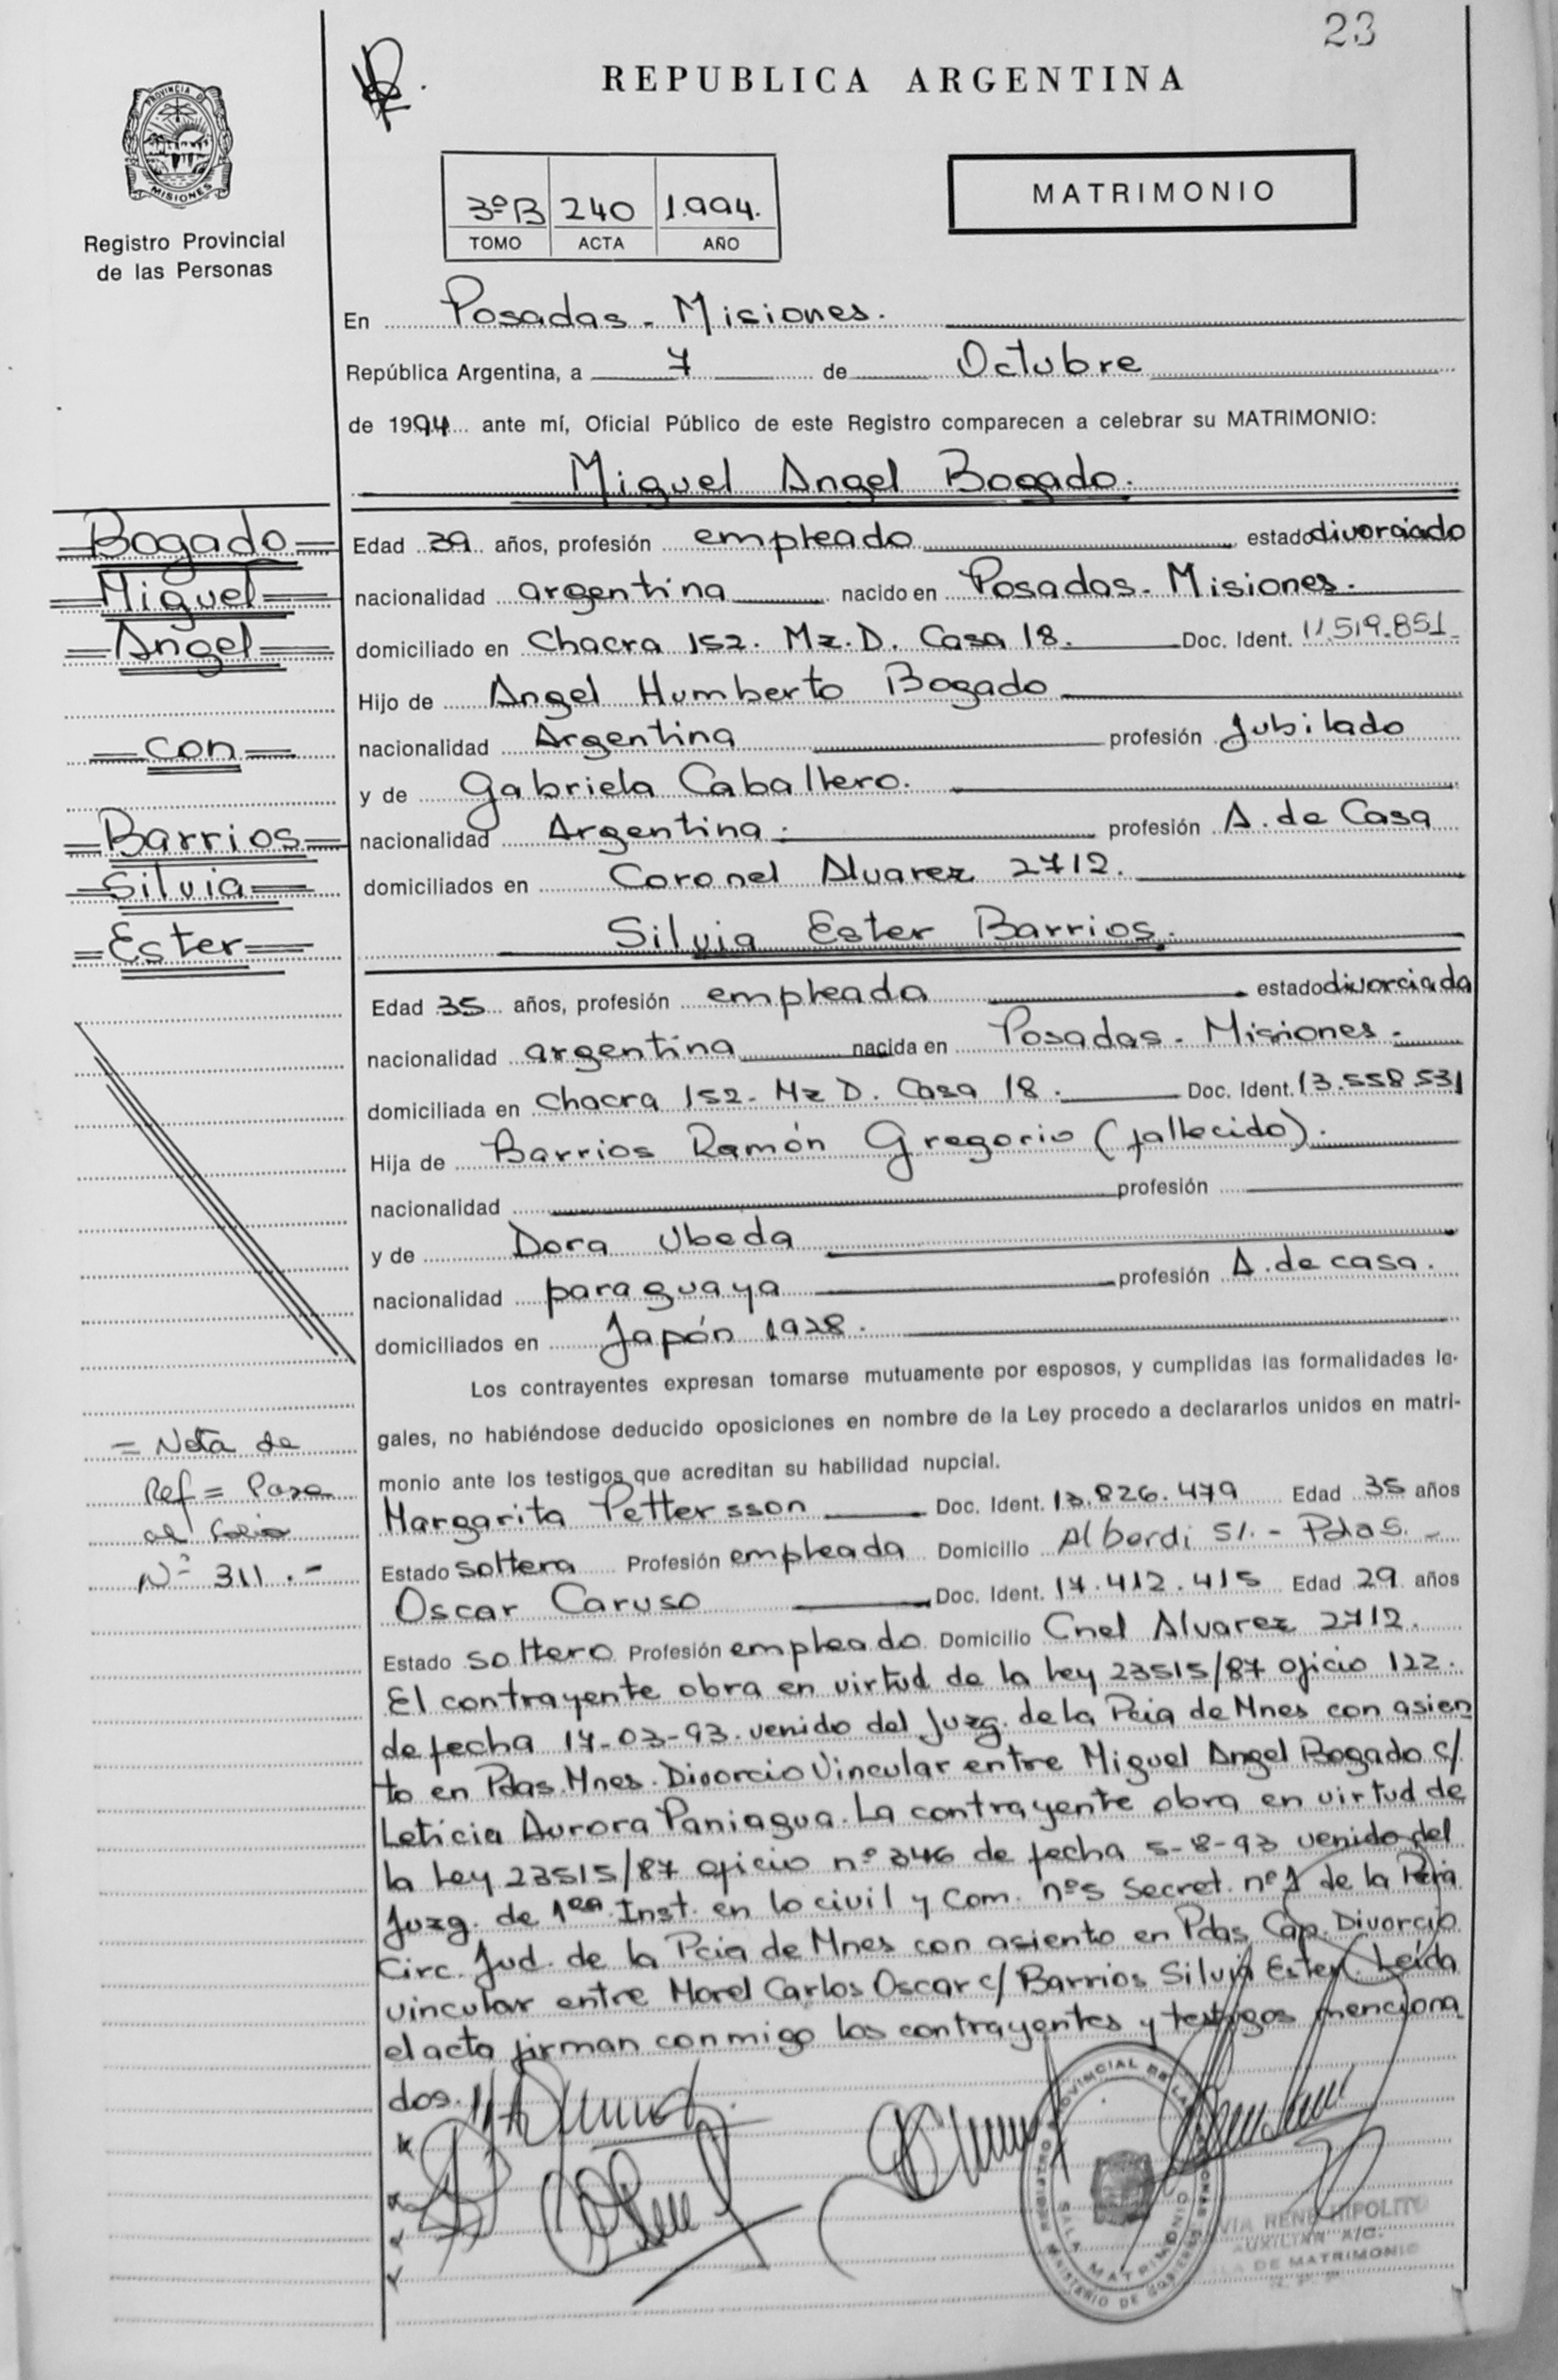 23
REPUBLICA ARGENTINA
PROVINCIA DE
MISIONES
Registro Provincial
de las Personas
3ºB 240 1.994.
TOMO ACTA AÑO
MATRIMONIO
En Posadas - Misiones.
República Argentina, a 7 de Octubre
de 1994 ante mí, Oficial Público de este Registro comparecen a celebrar su MATRIMONIO:
Miguel Angel Bogado.
Bogado
Miguel
Angel
con
Barrios
Silvia
Ester
Edad 39 años, profesión empleado estado divorciado
nacionalidad argentina nacido en Posadas - Misiones.
domiciliado en Chacra 152. Mz. D. Casa 18. Doc. Ident. 11.519.851
Hijo de Angel Humberto Bogado
nacionalidad Argentina profesión Jubilado
y de Gabriela Caballero.
nacionalidad Argentina. profesión A. de Casa
domiciliados en Coronel Alvarez 2712.
Silvia Ester Barrios.
Edad 35 años, profesión empleada estado divorciada
nacionalidad argentina nacida en Posadas - Misiones.
domiciliada en Chacra 152. Mz D. Casa 18. Doc. Ident. 13.558.531
Hija de Barrios Ramón Gregorio (fallecido).
nacionalidad profesión
y de Dora Ubeda
nacionalidad paraguaya profesión A. de casa.
domiciliados en Japón 1928.
Los contrayentes expresan tomarse mutuamente por esposos, y cumplidas las formalidades le-
gales, no habiéndose deducido oposiciones en nombre de la Ley procedo a declararlos unidos en matri-
monio ante los testigos que acreditan su habilidad nupcial.
= Nota de
Ref = Pasa
al folio
Nº 311.-
Margarita Pettersson Doc. Ident. 13.826.479 Edad 35 años
Estado soltera Profesión empleada Domicilio Alberdi S/. - Pdas.
Oscar Caruso Doc. Ident. 17.412.415 Edad 29 años
Estado soltero Profesión empleado Domicilio Cnel Alvarez 2712.
El contrayente obra en virtud de la Ley 23515/87 oficio 122.
de fecha 17-03-93. venido del Juzg. de la Pcia de Mnes con asien
to en Pdas. Mnes. Divorcio Vincular entre Miguel Angel Bogado c/
Leticia Aurora Paniagua. La contrayente obra en virtud de
la Ley 23515/87 oficio nº 346 de fecha 5-8-93 venido del
Juzg. de 1era. Inst. en lo civil y Com. nº5 Secret. nº1 de la
Circ. Jud. de la Pcia de Mnes con asiento en Pdas. Cap. Divorcio
vincular entre Morel Carlos Oscar c/ Barrios Silvia Ester. Leida
el acta firman conmigo los contrayentes y testigos menciona
dos.
REGISTRO PROVINCIAL DE LAS PERSONAS
SALA MATRIMONIO
MINISTERIO DE GOBIERNO
RENE HIPOLITO
AUXILIAR A/C.
SALA DE MATRIMONIO